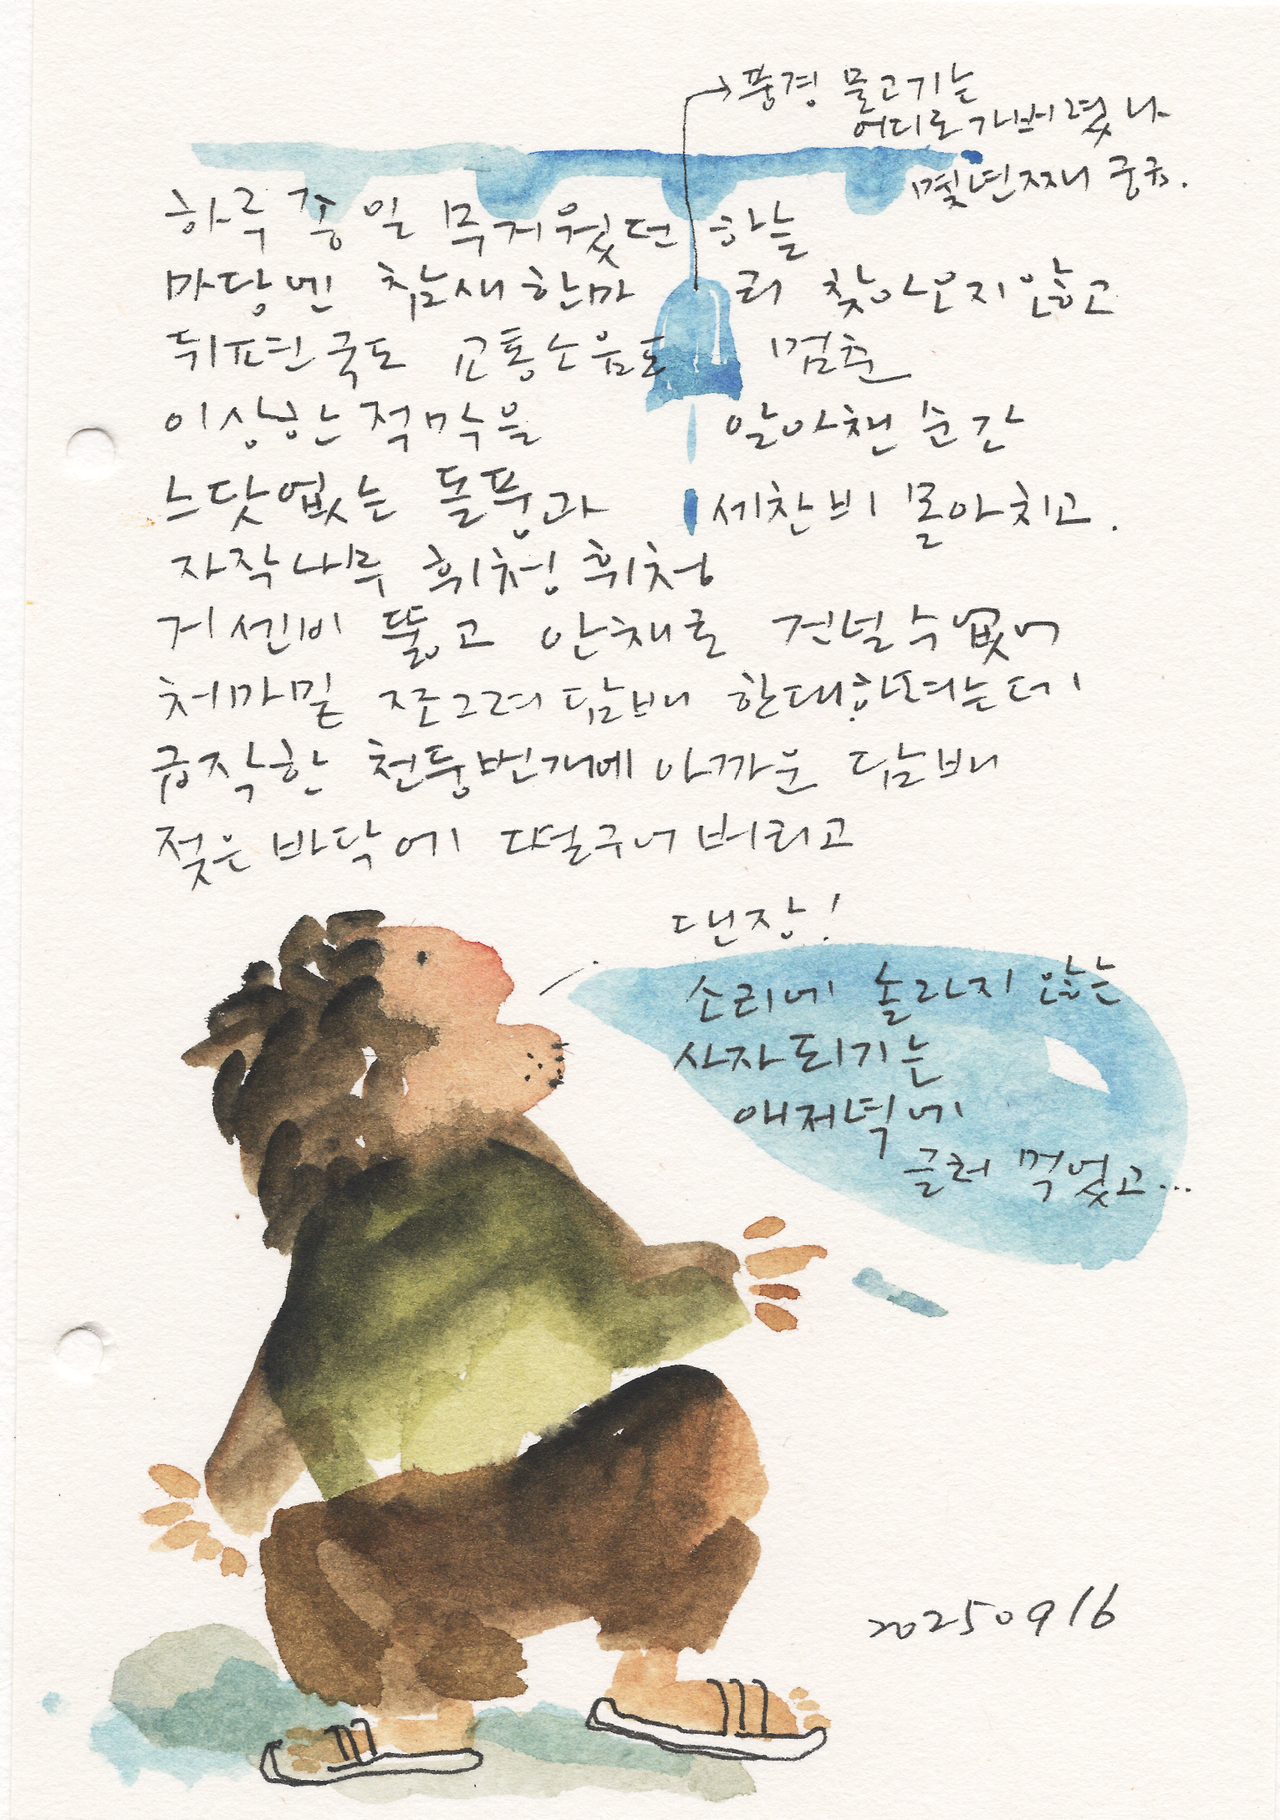 풍경 물고기는
어디로 가버렸나
몇년째 궁금.
하루종일 무거웠던 하늘
마당엔 참새 한마리 찾아오지 않고
뒤편 국도 교통소음도 멈춘
이상한 적막을 알아챈 순간
느닷없는 돌풍과 세찬비 몰아치고.
자작나무 휘청 휘청
거센비 뚫고 안채로 건널수 없어
처마밑 쪼그려 담배 한대 하려는데
급작한 천둥번개에 아까운 담배
젖은 바닥에 떨구어 버리고
댄장!
소리에 놀라지 않는
사자 되기는
애저녁에
글러 먹었고...
20250916